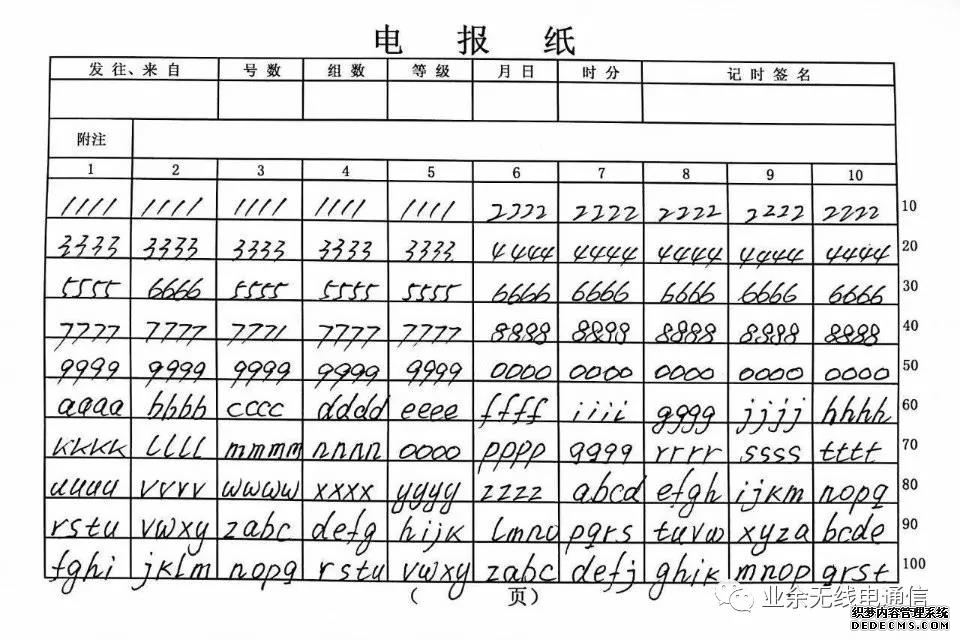 电 报 纸
发往、来自 号数 组数 等级 月日 时分 记时签名
附注
1 2 3 4 5 6 7 8 9 10
1111 1111 1111 1111 1111 2222 2222 2222 2222 2222 10
3333 3333 3333 3333 3333 4444 4444 4444 4444 4444 20
5555 6666 5555 5555 5555 6666 6666 6666 6666 6666 30
7777 7777 7771 7777 7777 8888 8898 8888 8888 8888 40
9999 9999 9999 9999 9999 0000 0000 0000 0000 0000 50
aaaa bbbb cccc dddd eeee ffff iiii gggg jjjj hhhh 60
kkkk llll mmmm nnnn oooo pppp qqqq rrrr ssss tttt 70
uuuu vvvv wwww xxxx yyyy zzzz abcd efgh ijkm nopq 80
rstu vwxy zabc defg hijk lmno pqrs tuvw xyza bcde 90
fghi jklm nopq rstu vwxy zabc defj ghik mnop qrst 100
( 页)
业余无线电通信
织梦内容管理系统
DEDECMS.COM